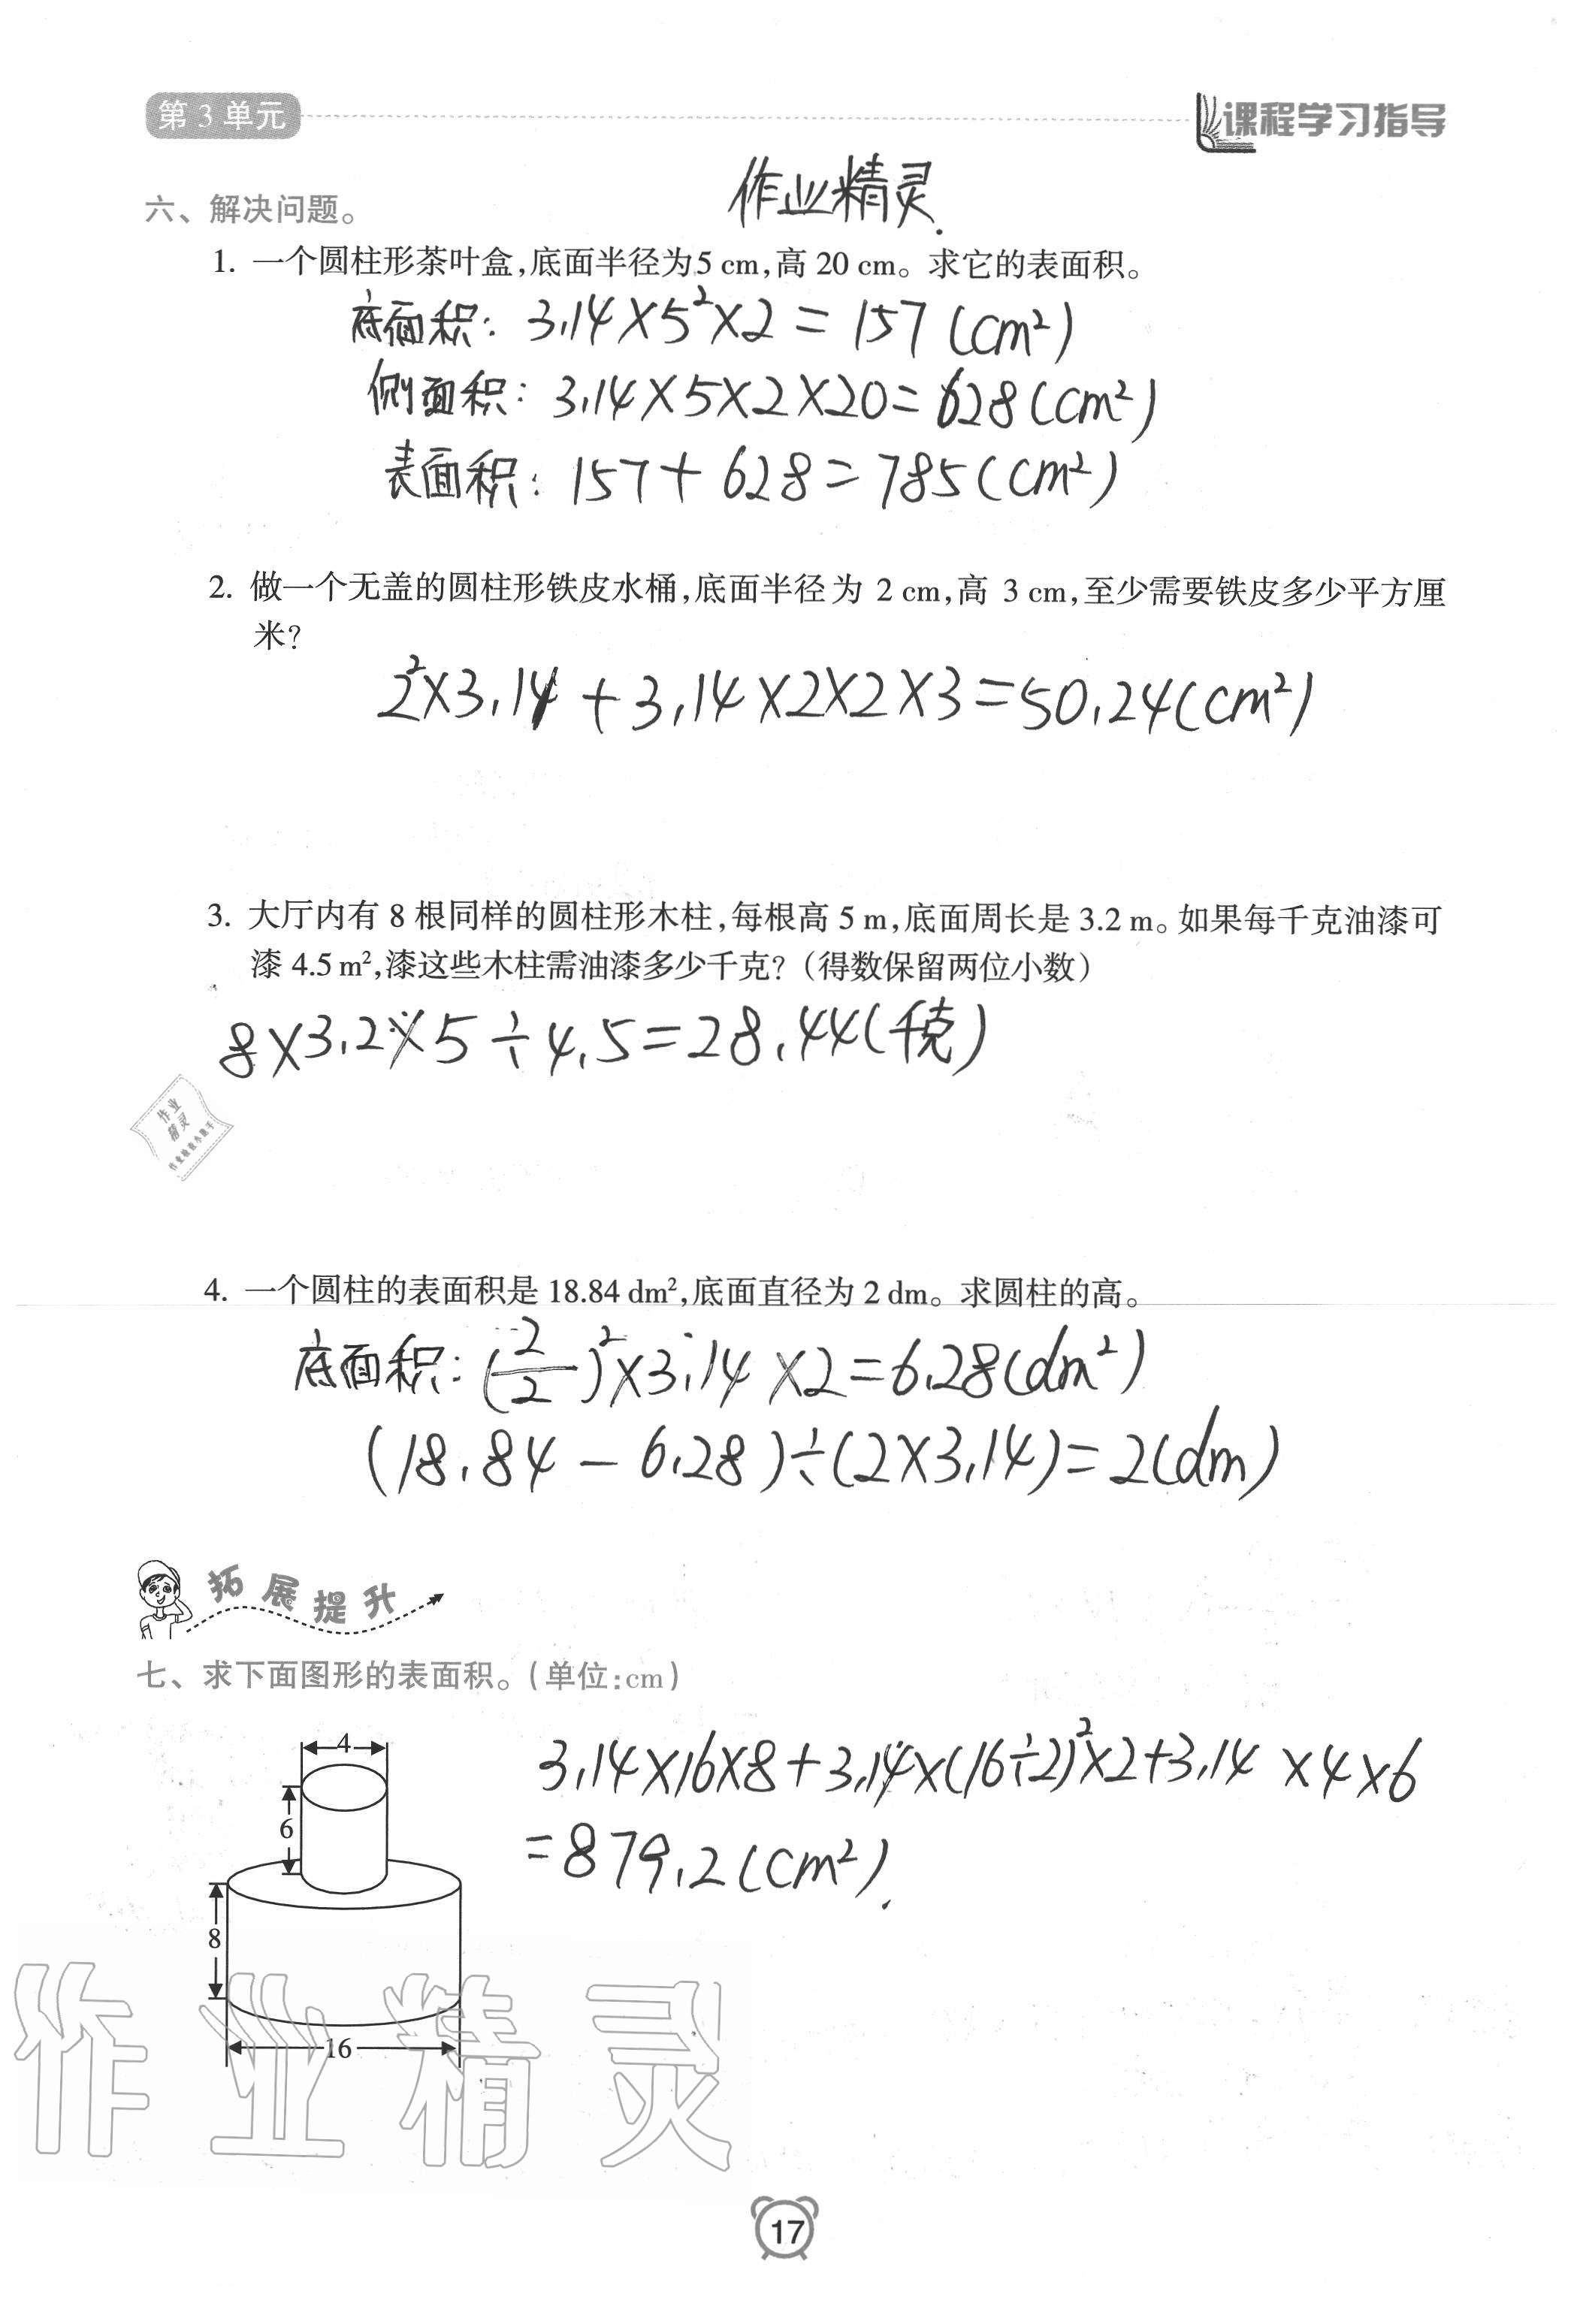 第 3 单元
课程学习指导
作业精灵.
六、解决问题。
1. 一个圆柱形茶叶盒,底面半径为5 cm,高 20 cm。求它的表面积。
底面积: 3.14×5²×2=157(cm²)
侧面积: 3.14×5×2×20=628(cm²)
表面积: 157+628=785(cm²)
2. 做一个无盖的圆柱形铁皮水桶,底面半径为 2 cm,高 3 cm,至少需要铁皮多少平方厘
米?
2²×3.14+3.14×2×2×3=50.24(cm²)
3. 大厅内有 8 根同样的圆柱形木柱,每根高 5 m,底面周长是 3.2 m。如果每千克油漆可
漆 4.5 m²,漆这些木柱需油漆多少千克?(得数保留两位小数)
8×3.2×5÷4.5=28.44(千克)
作业
精灵
4. 一个圆柱的表面积是 18.84 dm²,底面直径为 2 dm。求圆柱的高。
底面积: (2/2)²×3.14×2=6.28(dm²)
(18.84-6.28)÷(2×3.14)=2(dm)
拓展提升
七、求下面图形的表面积。(单位:cm)
4
6
8
16
3.14×16×8+3.14×(16÷2)²×2+3.14×4×6
=879.2(cm²).
作业精灵
17